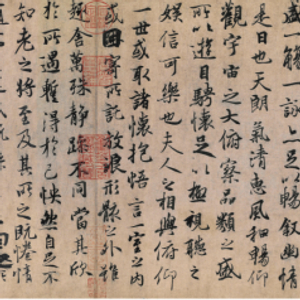 盛一觴一詠亦足以暢敘幽情
是日也天朗氣清惠風和暢仰
觀宇宙之大俯察品類之盛
所以遊目騁懷足以極視聽之
娛信可樂也夫人之相與俯仰
一世或取諸懷抱悟言一室之內
或因寄所託放浪形骸之外雖
趣舍萬殊靜躁不同當其欣
於所遇暫得於己怏然自足不
知老之將至及其所之既惓情